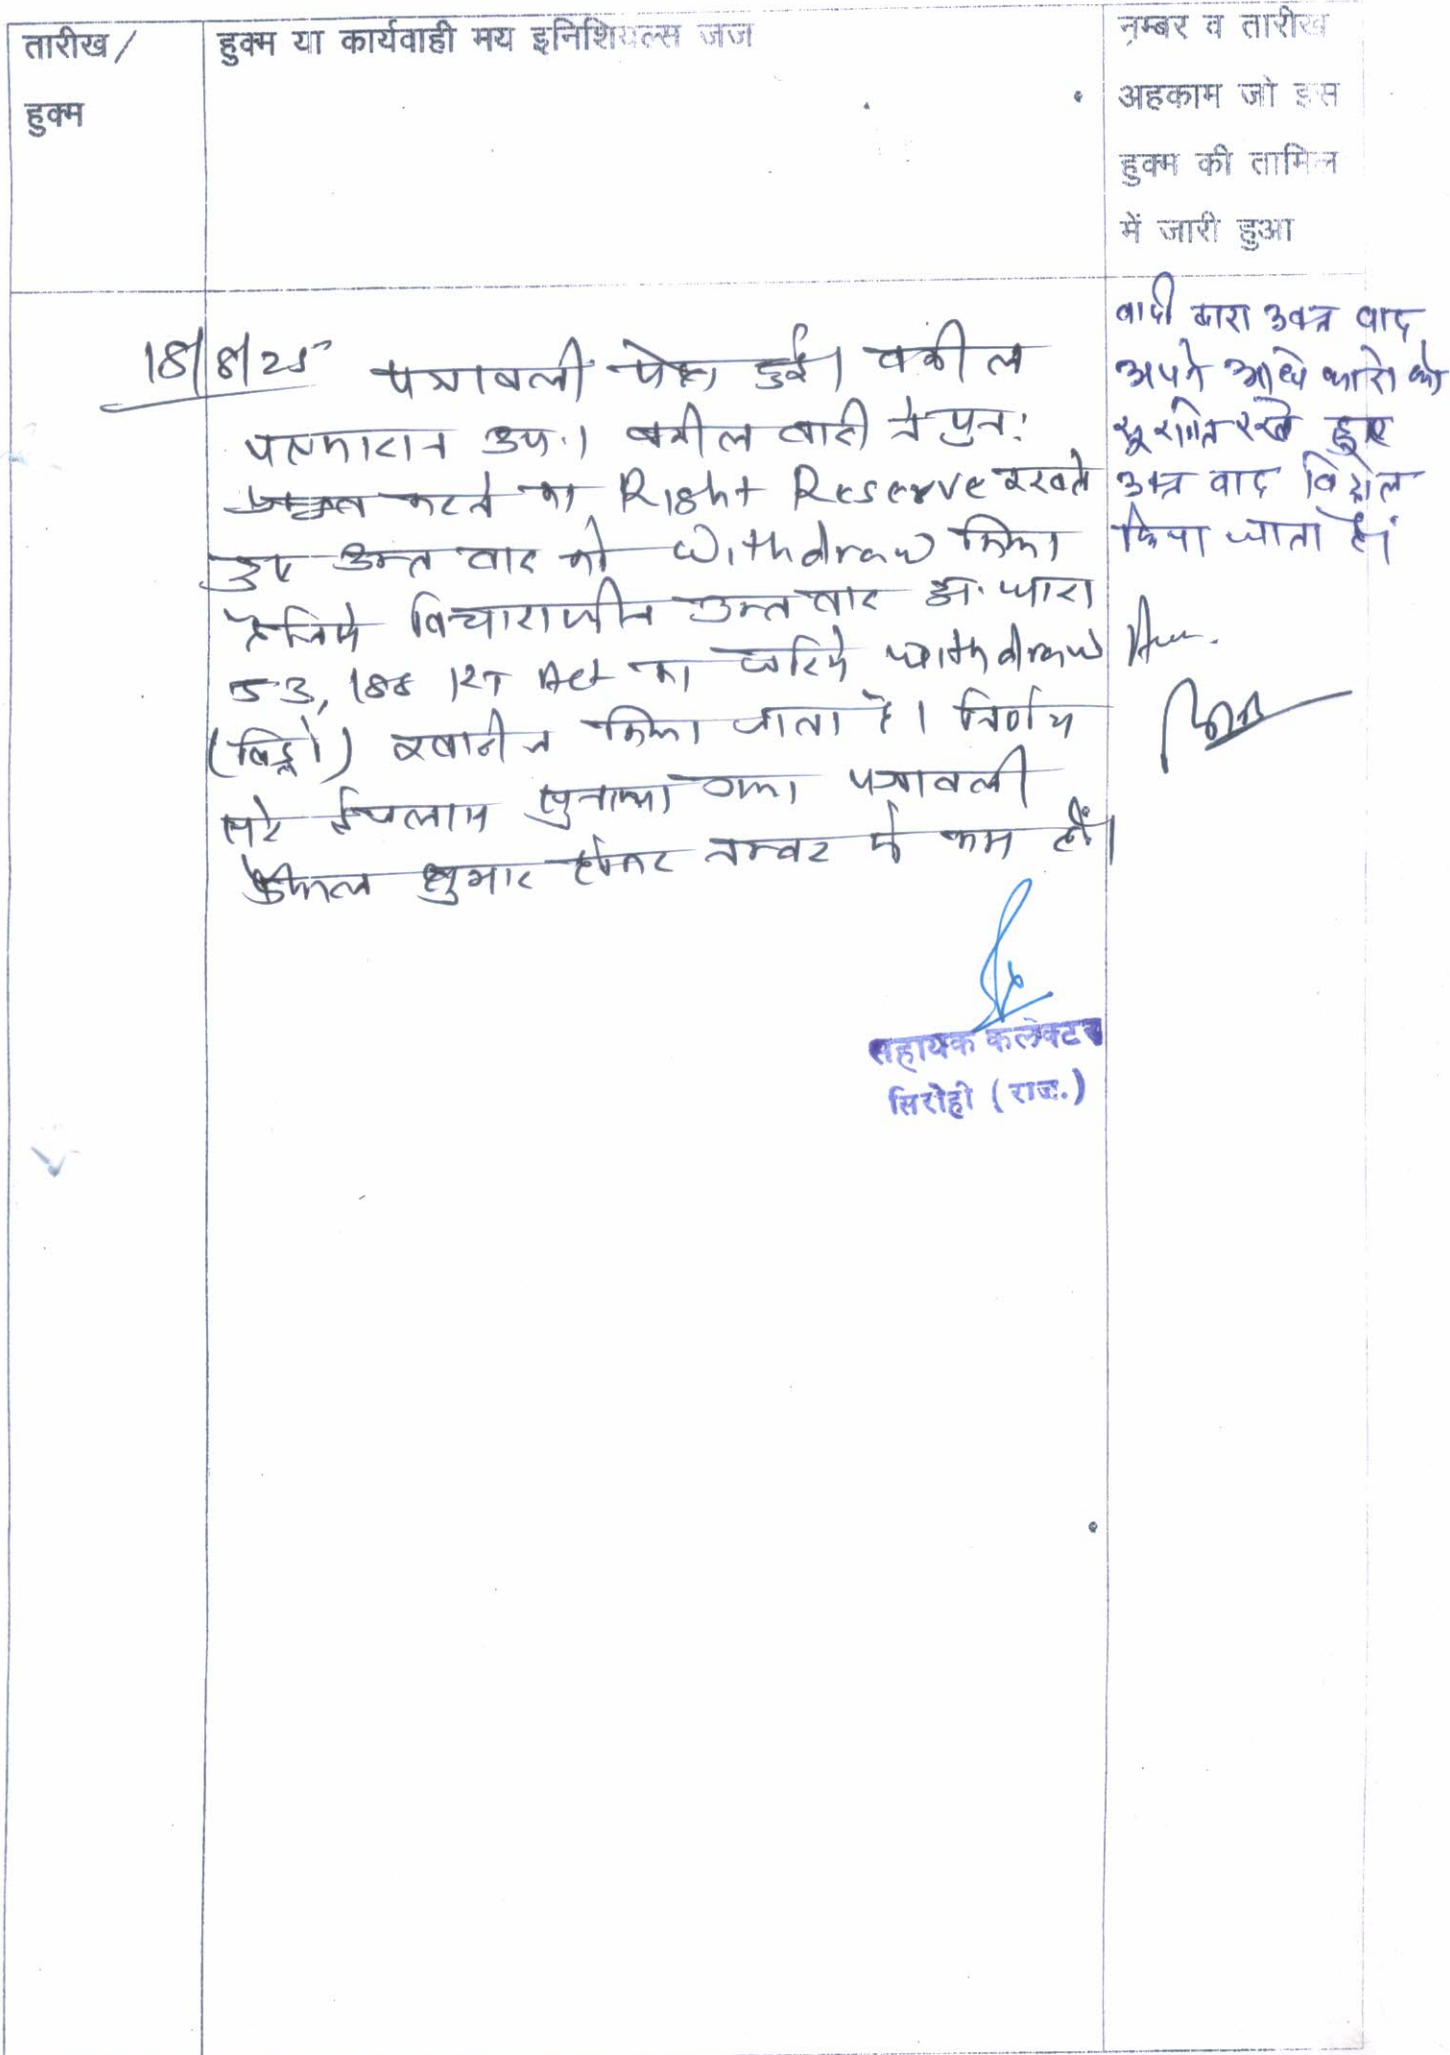 तारीख / हुक्म या कार्यवाही मय इनिशियल्स जज नम्बर व तारीख
हुक्म
अहकाम जो इस
हुक्म की तामिल
में जारी हुआ
18/8/25 पत्रावली पेश हुई। वकील
पक्षकारान उप.। वकील वादी ने पुनः
करने का Right Reserve रखते
हुए उक्त वाद को Withdraw किया
विचाराधीन उक्त वाद अ. धारा
53, 188 RT Act का जरिये withdraw
(विड्रो) खारीज किया जाता है। निर्णय
सरे ईजलास सुनाया गया। पत्रावली
फैसल शुमार होकर नम्बर से कम हो।
सहायक कलेक्टर
सिरोही (राज.)
वादी द्वारा उक्त वाद
अपने अधिकारो को
सुरक्षित रखते हुए
उक्त वाद विड्रोल
किया जाता है।